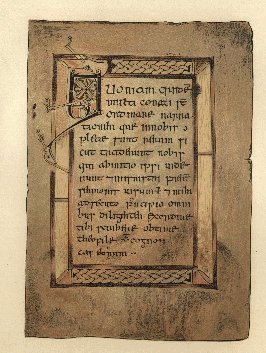 Quoniam quide
multi conati st
ordinare narra
tionem que innobis
plete sunt rerum si
cut tradiderunt nobis
qui abinitio ipsi uide
runt ministri
sermonis uisum mihi
adsecuto principio omni
bus diligenter exordine
tibi scribere obtime
theophile cognos
cas